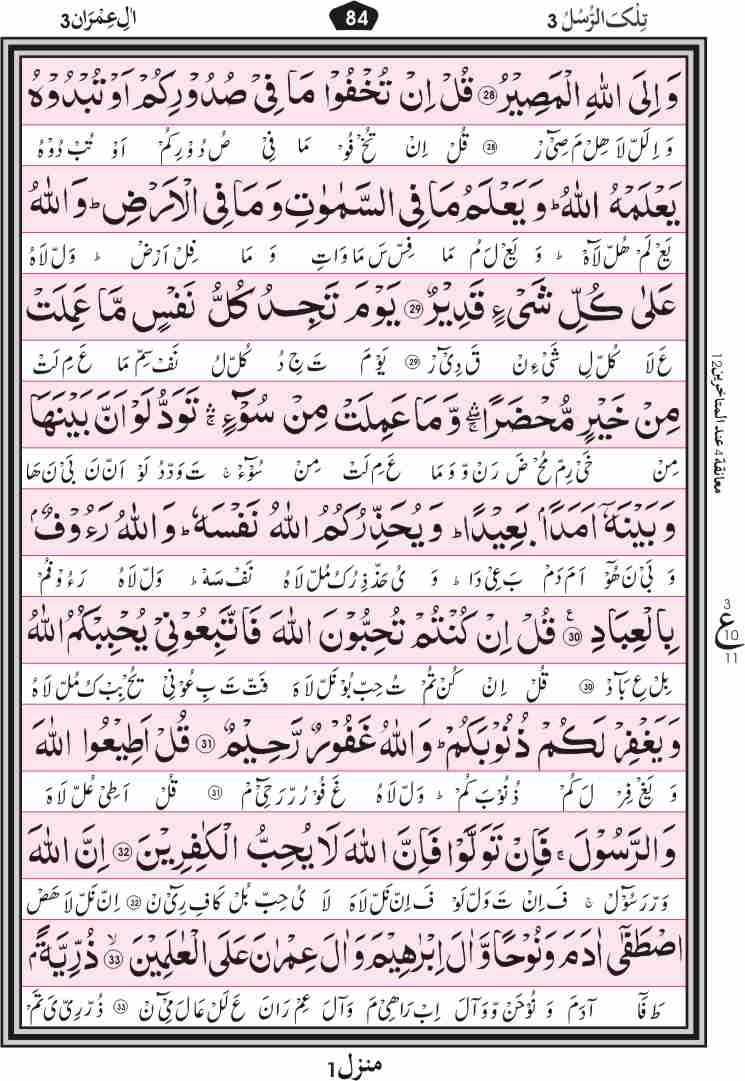 تِلْكَ الرُّسُلُ 3
84
اٰلِ عِمْرَان 3
وَ اِلَى اللّٰهِ الْمَصِيْرُ ﴿28﴾ قُلْ اِنْ تُخْفُوْا مَا فِيْ صُدُوْرِكُمْ اَوْ تُبْدُوْهُ
وَ اِ لَلّ لَا هِلْ مَ صِيْٓ رْ ﴿28﴾ قُلْ اِنْ تُخْ فُوْ مَا فِيْ صُ دُوْ رِكُمْ اَوْ تُبْ دُوْ هُ
يَعْلَمْهُ اللّٰهُ ؕ وَ يَعْلَمُ مَا فِي السَّمٰوٰتِ وَ مَا فِي الْاَرْضِ ؕ وَ اللّٰهُ
يَعْ لَمْ هُلّ لَاهْ ؕ وَ يَعْ لَ مُ مَا فِسّ سَ مَا وَاتِ وَ مَا فِلْ اَرْضْ ؕ وَلّ لَاهُ
عَلٰى كُلِّ شَيْءٍ قَدِيْرٌ ﴿29﴾ يَوْمَ تَجِدُ كُلُّ نَفْسٍ مَّا عَمِلَتْ
عَ لَا كُلّ لِ شَيْءِنْ قَ دِيْٓ رْ ﴿29﴾ يَوْ مَ تَ جِ دُ كُلّ لُ نَفْ سِمّ مَا عَ مِ لَتْ
مِنْ خَيْرٍ مُّحْضَرًا ۛۖ وَّ مَا عَمِلَتْ مِنْ سُوْٓءٍ ۛۚ تَوَدُّ لَوْ اَنَّ بَيْنَهَا
مِنْ خَيْ رِمّ مُحْ ضَ رَنْ وَ وَ مَا عَ مِ لَتْ مِنْ سُوْٓءْ ۚ تَ وَدّ دُ لَوْ اَنّ نَ بَيْ نَ هَا
وَ بَيْنَهٗۤ اَمَدًۢا بَعِيْدًا ؕ وَ يُحَذِّرُكُمُ اللّٰهُ نَفْسَهٗ ؕ وَ اللّٰهُ رَءُوْفٌۢ
وَ بَيْ نَ هُوْٓ اَمَ دَمْ بَ عِيْ دَا ؕ وَ يُ حَذّ ذِ رُكُ مُلّ لَا هُ نَفْ سَهْ ؕ وَلّ لَا هُ رَءُوْ فُمْ
بِالْعِبَادِ ﴿30﴾ قُلْ اِنْ كُنْتُمْ تُحِبُّوْنَ اللّٰهَ فَاتَّبِعُوْنِيْ يُحْبِبْكُمُ اللّٰهُ
بِلْ عِ بَآدْ ﴿30﴾ قُلْ اِنْ كُنْ تُمْ تُ حِبّ بُوْ نَلّ لَا هَ فَتّ تَ بِ عُوْ نِيْ يُحْ بِبْ كُ مُلّ لَا هُ
وَ يَغْفِرْ لَكُمْ ذُنُوْبَكُمْ ؕ وَ اللّٰهُ غَفُوْرٌ رَّحِيْمٌ ﴿31﴾ قُلْ اَطِيْعُوا اللّٰهَ
وَ يَغْ فِرْ لَ كُمْ ذُ نُوْ بَ كُمْ ؕ وَلّ لَا هُ غَ فُوْ رُرّ رَ حِيْٓ مْ ﴿31﴾ قُلْ اَ طِيْ عُلّ لَا هَ
وَ الرَّسُوْلَ ۚ فَاِنْ تَوَلَّوْا فَاِنَّ اللّٰهَ لَا يُحِبُّ الْكٰفِرِيْنَ ﴿32﴾ اِنَّ اللّٰهَ
وَرّ رَ سُوْٓلْ ۚ فَ اِنْ تَ وَلّ لَوْ فَ اِنّ نَلّ لَا هَ لَا يُ حِبّ بُلْ كَا فِ رِيْٓ نْ ﴿32﴾ اِنّ نَلّ لَا هَصْ
اصْطَفٰۤى اٰدَمَ وَ نُوْحًا وَّ اٰلَ اِبْرٰهِيْمَ وَ اٰلَ عِمْرٰنَ عَلَى الْعٰلَمِيْنَ ﴿33﴾ۙ ذُرِّيَّةًۢ
طَ فَآ آدَمَ وَ نُوْحَنْ وَ وَ آلَ اِبْ رَا هِيْ مَ وَ آلَ عِمْ رَا نَ عَ لَلْ عَا لَ مِيْٓ نْ ﴿33﴾ ذُ رّرِ يّ يَ تَمْ
معانقة 4 عند المتاخرين 12
3
ع
10
11
منزل 1